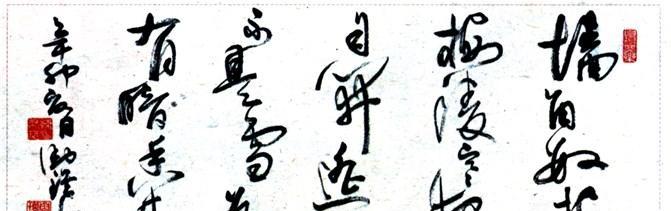 墙角数枝
梅凌寒独
自開遥
不是雪为
有暗香来
辛卯夏日